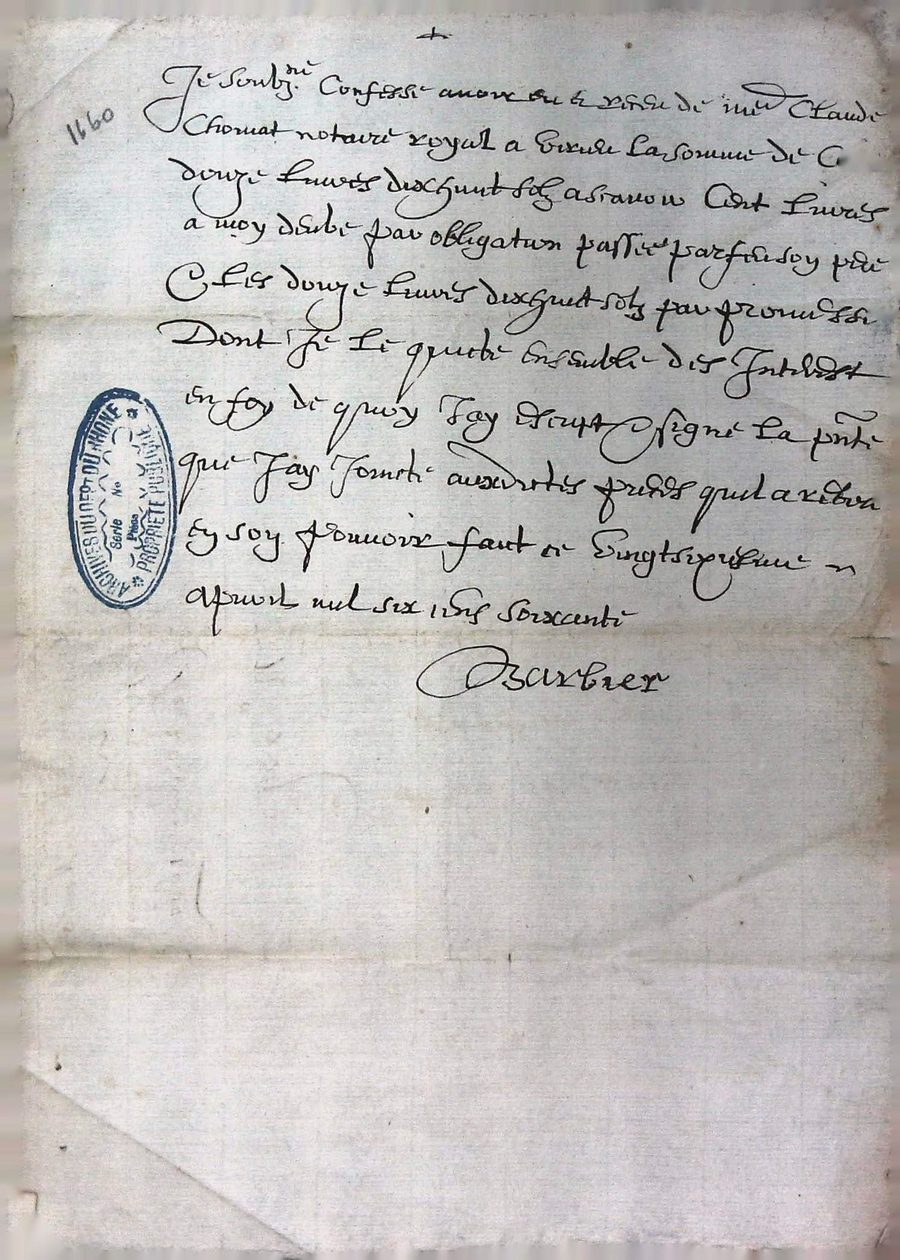 +
1660
Je soubz.né Confesse avoir eu & receu de me Claude
Chomat notaire royal a virieu la somme de C
douze livres dixhuit solz ascavoir Cent livres
a moy deube par obligation passee par feu son pere
& les douze livres dixhuit solz par promesse
Dont Je le quicte ensemble des Interest
en foy de quoy Jay escript & signé la pnte
que Jay Joincte aux dictes pieces quil a
en son pouvoir faict ce vingtsixiesme
apvril mil six cens soixante
Barbier
ARCHIVES DU DEPT DU RHONE
Série No
Pièce
PROPRIÉTÉ PUBLIQUE